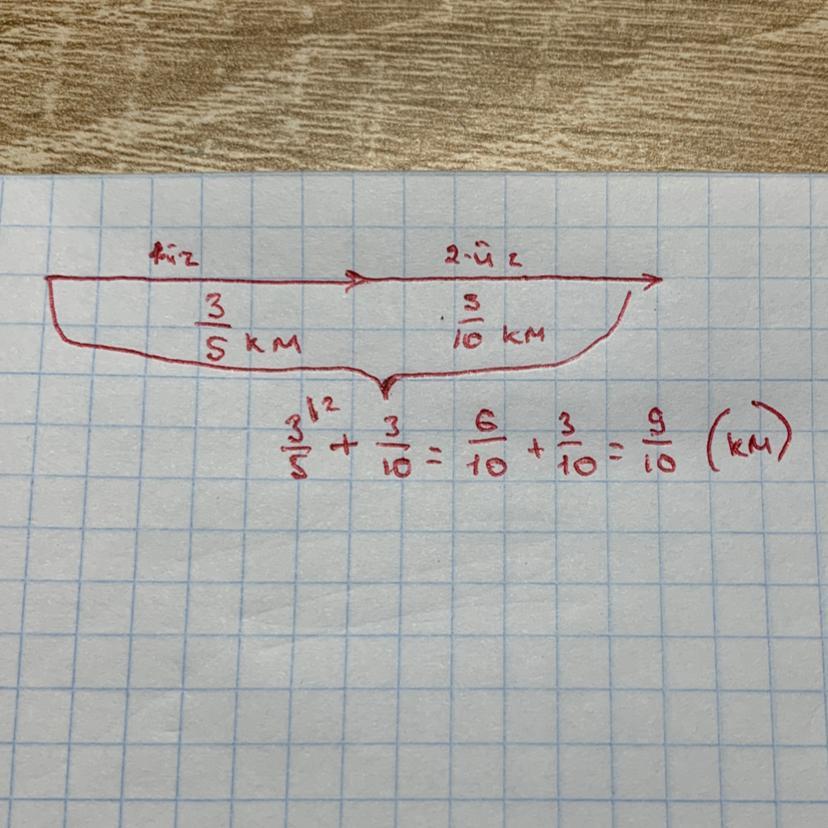 1-й г 2-й г
3/5 км 3/10 км
3/5 |2 + 3/10 = 6/10 + 3/10 = 9/10 (км)